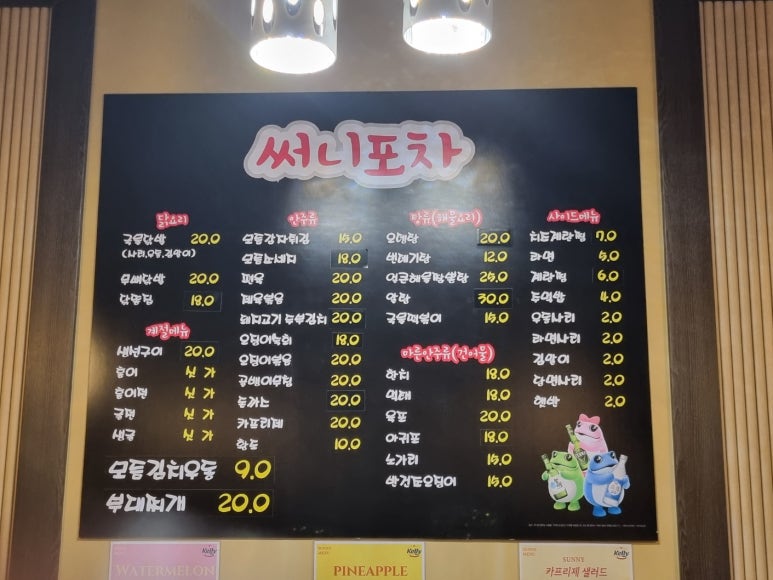 써니포차
닭요리
국물닭발 20.0
무뼈닭발 20.0
닭똥집 18.0
계절메뉴
생선구이 20.0
싯가
싯가
굴전 싯가
생굴 싯가
모듬김치우동
부대찌개 20.0
안주류
모듬감자튀김 15.0
모듬소세지 18.0
편육 20.0
제육볶음 20.0
돼지고기 두부김치 20.0
오징어숙회 18.0
오징어볶음 20.0
골뱅이무침 20.0
돈까스 20.0
카프리제 20.0
황도 10.0
탕류(해물요리)
오뎅탕 20.0
번데기탕 12.0
얼큰해물짬뽕탕 25.0
알탕 30.0
국물떡볶이 15.0
마른안주류(건어물)
한치 18.0
먹태 18.0
육포 20.0
아귀포 18.0
노가리 15.0
반건조오징어 15.0
사이드메뉴
치즈계란찜 7.0
라면 5.0
계란찜 6.0
주먹밥 4.0
우동사리 2.0
라면사리 2.0
김말이 2.0
당면사리 2.0
햇반 2.0
Kelly
WATERMELON
Kelly
PINEAPPLE
SUNNY
Kelly
카프리제 샐러드